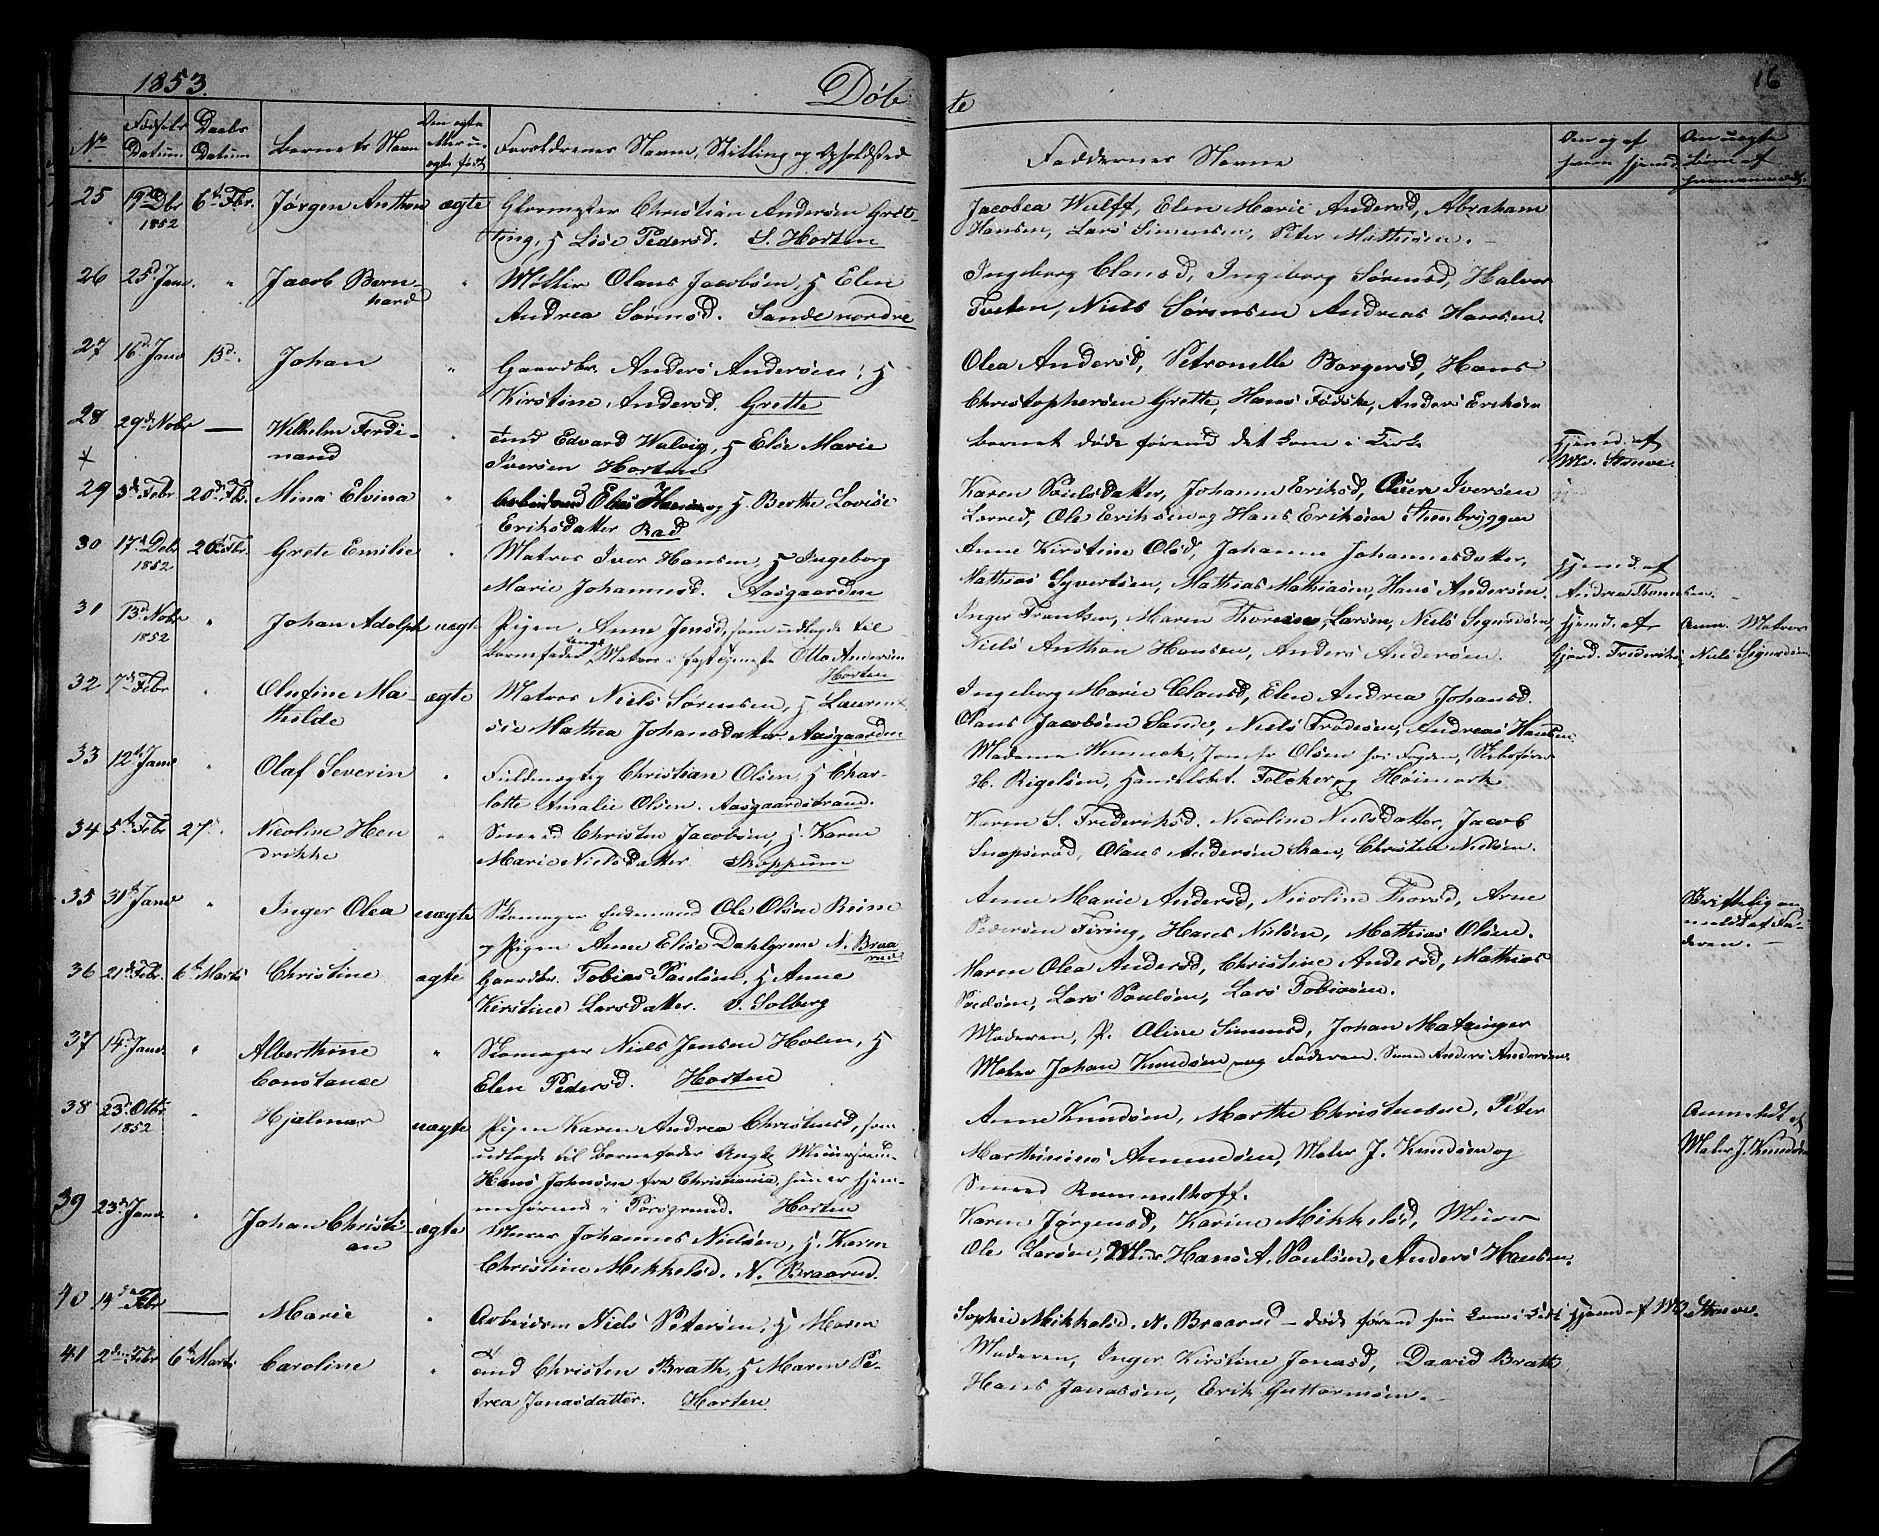 1853.
Døb
te
16
No
Fødsels Datum
Daabs Datum
Barnets Navn
Om ægte eller uægte født
Forældrenes Navne, Stilling og Opholdsted
Faddernes Navne
25 19de Dbr 1852 6te Fbr. Jørgen Anthon ægte Christian Andersen Gret-
ting, H Lise Pedersd. S. Horten
Jacobea Wulff, Elen Marie Andersd, Abraham
Hansen, Lars Simensen, Peter Mathisen.
26 25d Janv. " Jacob Bern- " Møller Olaus Jacobsen, H Elen
hard Andrea Sørensd. Sande nordre
Ingeborg Clausd, Ingeborg Sørensd, Halvor
Tveten, Niels Sørensen Andreas Hansen.
27 16d Janv 13d. Johan " Gaardbr. Anders Andersen, H
Kirstine Andersd. Grette
Olea Andersd, Petronelle Borgersd, Hans
Christophersen Grette, Hans Fødske, Anders Eriksen
28 29de Nobr — Wilhelm Ferdi- " Edvard Walvig, H Else Marie
nand Iversen Horten
barnet døde førend det kom i Kirke
Hjemd. af
Struve.
29 3de Febr 20de Fb. Mina Elvina " Arbeidsmd Elias Hansen og H. Berthe Lovise
Eriksdatter Rad
Karen Poulsdatter, Johanne Eriksd, Iversen
Ole Eriksen og Hans Eriksen Steenbryggen
30 17d Debr 1852 20de Fbr. Grete Emilie " Matros Iver Hansen, H Ingeborg
Marie Johannesd. Aasgaarden
Anne Kirstine Olsd, Johanne Johannesdatter,
Mathias Syvertsen, Mathias Mathiasen, Hans Andersen
Hjemd. af
Andrea Thomesen.
31 13d Nobr 1852 " Johan Adolph uægte Pigen Anne Jensd, som udlagde til
barnefader Matros i fast tjeneste Otto Andersen
Horten
Inger Frantsen, Maren Thorine Larsen, Niels Sigurdsen
Niels Anthon Hansen, Anders Andersen.
Hjemd. af
Gjord. Frederiks
Anm. Matros
Niels Sigurdsen
32 7de Febr " Olufine Ma- ægte Matros Niels Sørensen, H Lauren-
thilde sie Mathea Johansdatter. Aasgaarden
Ingeborg Marie Clausd, Elen Andrea Johansd.
Olaus Jacobsen Sande, Niels Frodesen, Andreas Hansen
33 12te Janv " Olaf Severin " Fuldmægtig Christian Olsen, H Char-
lotte Amalie Olsen. Aasgaardstrand.
Madame Wennech, Jomfr Olsen hos Fogden, Skibsfører
H. Rigelsen, Handelsbet. Folcker og Høimork
34 5te Febr 27d. Nicoline Hen " Smed Christen Jacobsen, H. Karen
drikke Marie Nielsdatter Skoppum
Karen S. Frederiksd. Nicoline Nielsdatter, Jacob
Snapserød, Olaus Andersen Skau, Christen Nielsen.
35 31te Janv " Inger Olea uægte Skomager Enkemand Ole Olsen Reine
og Pigen Anne Elise Dahlgreen N. Braa
rud
Anne Marie Andersd, Nicoline Thorsd, Arne
Pedersen Firing, Hans Nielsen, Mathias Olsen.
Skriftlig an-
meldt af Fa-
deren. —
36 21de Febr. 6te Marts Christine ægte Gaardbr. Tobias Paulsen, H Anne
Kirstine Larsdatter. Solberg
Maren Olea Andersd, Christine Andersd, Mathias
Poulsen, Lars Poulsen, Lars Tobiasen.
37 14d Janv. " Alberthine " Skomager Niels Jensen Holen, H
Constance Elen Pedersd. Horten
Moderen, P. Oline Simensd, Johan Matzinger
Maler Johan Knudsen og Faderen. Smed Anders Andersen
38 23d Otbr 1852 " Hjalmar uægte Pigen Karen Andrea Christensd, som
udlagde til Barnefader Ungk. Muursvend
Hans Johnsen fra Christiania, hun er hjem-
mehørend i Porsgrund. Horten
Anne Knudsen, Marthe Christensen, Peter
Marthinius Amundsen, Maler J. Knudsen og
Smed Rummelhoff.
Anmeldt af
Maler J. Knudsen
39 23de Janv " Johan Christi- ægte Murer Johannes Nielsen, H. Karen
an Christine Mikkelsd. N. Braarud.
Karen Jørgensd, Karine Mikkelsd, Murer
Ole Larsen, Hans A. Poulsen, Anders Hansen.
40 14de Febr — Marie " Arbeidsm Niels Petersen, H Maren
Sophie Mikkelsd. N. Braarud — døde førend hun kom i Kirke Hjemd af Struve.
41 2den Febr 6te Marts Caroline " Christen Brath, H Maren Pe-
trea Jonasdatter. Horten
Moderen, Inger Kirstine Jonasd, David Brath
Hans Jonassen, Erik Guttormsen. —